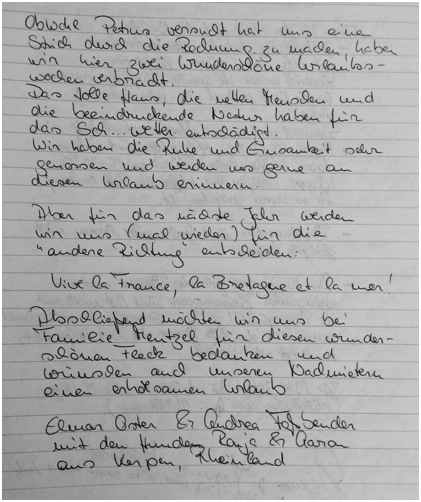 Obwohl Petrus versucht hat uns einen
Strich durch die Rechnung zu machen, haben
wir hier zwei wunderschöne Urlaubs-
wochen verbracht.
Das tolle Haus, die netten Menschen und
die beeindruckende Natur haben für
das Sch...wetter entschädigt.
Wir haben die Ruhe und Einsamkeit sehr
genossen und werden uns gerne an
diesen Urlaub erinnern.
Aber für das nächste Jahr werden
wir uns (mal wieder) für die
"andere Richtung" entscheiden:
Vive la France, la Bretagne et la mer!
Abschließend möchten wir uns bei
Familie Hentzel für diesen wunder-
schönen Fleck bedanken und
wünschen auch unseren Nachmietern
einen erholsamen Urlaub
Elmar Oster & Andrea Faßbender
mit den Hunden Ranja & Aaron
aus Kerpen, Rheinland